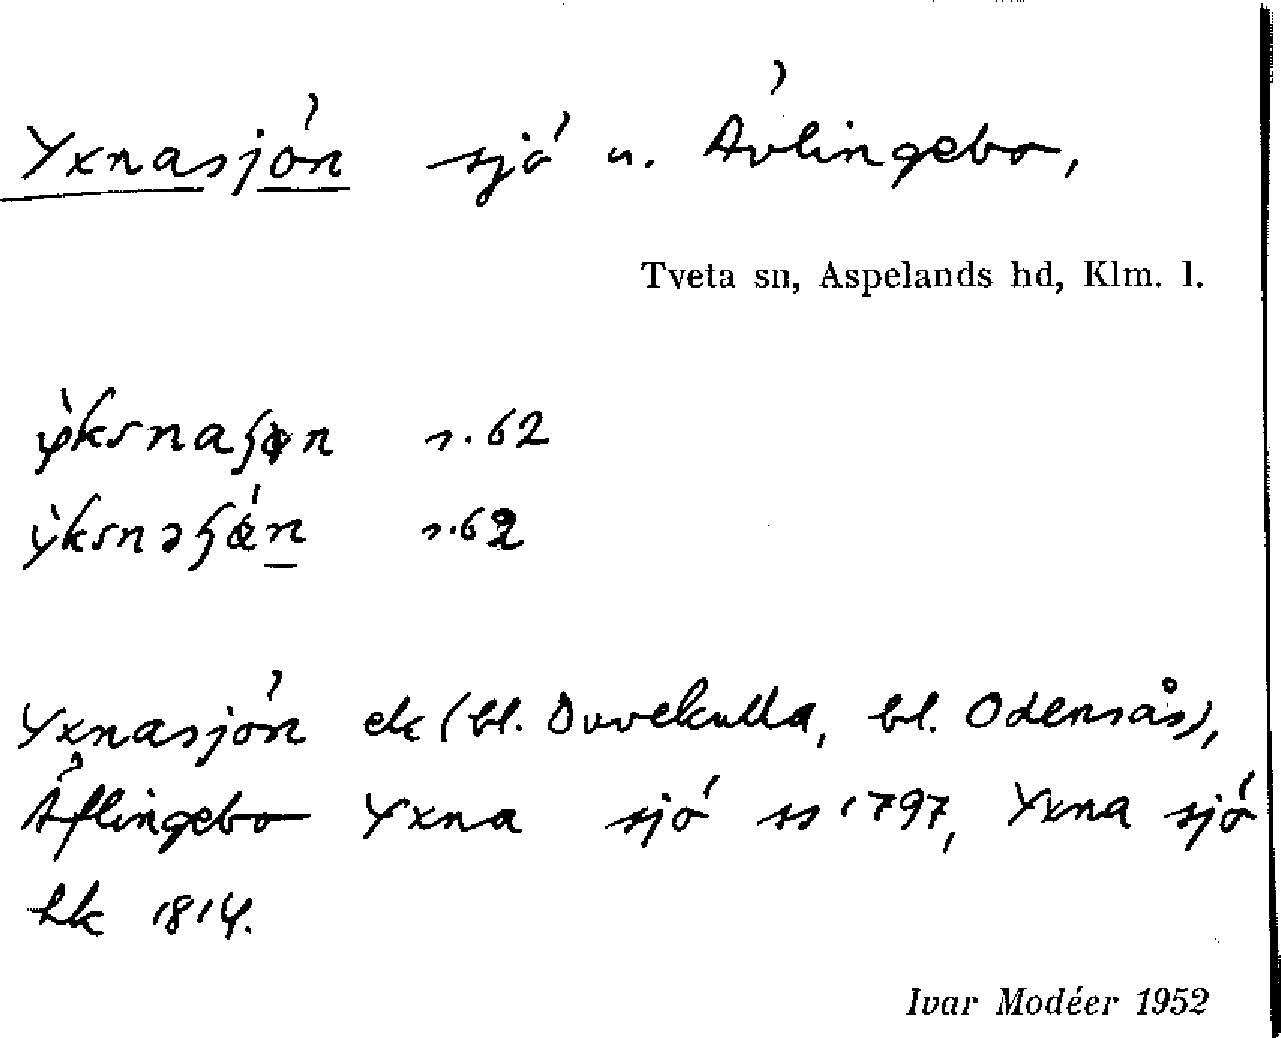 Yxnasjön sjö u. Ävlingebo,
Tveta sn, Aspelands hd, Klm. l.
s. 62
s. 62
Yxnasjön ek (bl. Duvekulla, bl. Odensås),
Äflingebo Yxna sjö ss 1797, Yxna sjö
hk 1814.
Ivar Modéer 1952